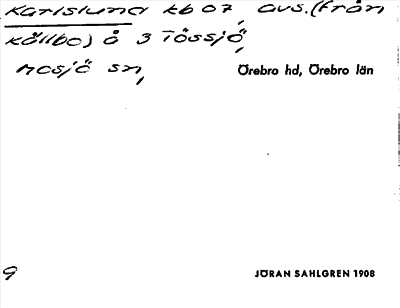 Karlslund kb 07, avs. (från
Källbo) å 3 Tössjö,
Mosjö sn,
Örebro hd, Örebro län
9
JÖRAN SAHLGREN 1908